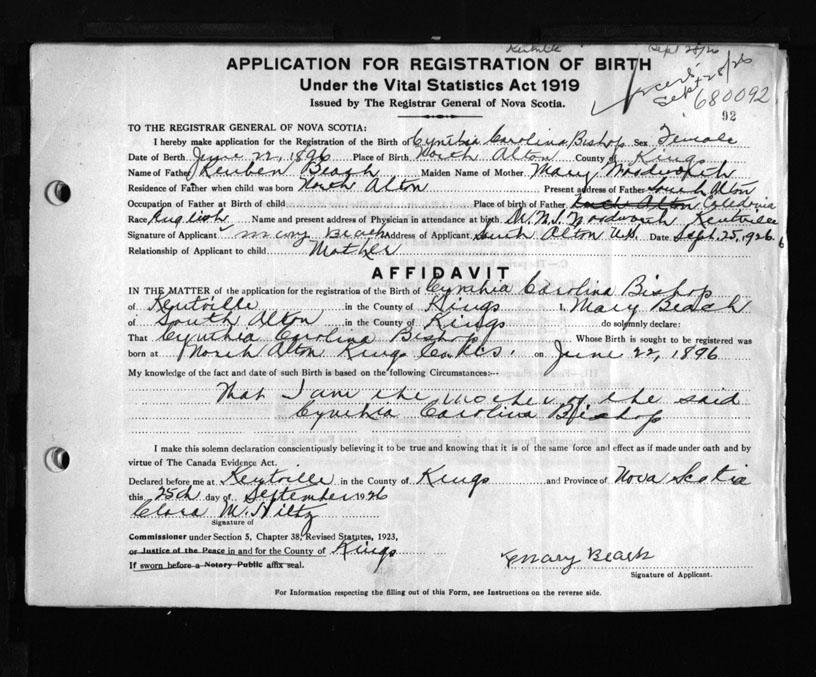 Kentville Sept 28/26
APPLICATION FOR REGISTRATION OF BIRTH
Under the Vital Statistics Act 1919
Sept 28/26
Issued by The Registrar General of Nova Scotia.
680092
92
TO THE REGISTRAR GENERAL OF NOVA SCOTIA:
I hereby make application for the Registration of the Birth of Cynthia Carolina Bishop Sex Female
Date of Birth June 22, 1896 Place of Birth North Alton County of Kings
Name of Father Reuben Beach Maiden Name of Mother Mary Woodworth
Residence of Father when child was born North Alton Present address of Father South Alton
Occupation of Father at Birth of child Place of birth of Father South Alton Caledonia
Race English Name and present address of Physician in attendance at birth Dr. W.S. Woodworth Kentville
Signature of Applicant Mary Beach Address of Applicant South Alton N.S. Date Sept. 25, 1926 6
Relationship of Applicant to child Mother
AFFIDAVIT
IN THE MATTER of the application for the registration of the Birth of Cynthia Carolina Bishop
of Kentville in the County of Kings I, Mary Beach
of South Alton in the County of Kings do solemnly declare:
That Cynthia Carolina Bishop Whose Birth is sought to be registered was
born at North Alton Kings Co. N.S. on June 22, 1896
My knowledge of the fact and date of such Birth is based on the following Circumstances:--
That I am the mother of the said
Cynthia Carolina Bishop
I make this solemn declaration conscientiously believing it to be true and knowing that it is of the same force and effect as if made under oath and by
virtue of The Canada Evidence Act.
Declared before me at Kentville in the County of Kings and Province of Nova Scotia
this 25th day of September 1926
Clara M. Hiltz
Signature of
Commissioner under Section 5, Chapter 38, Revised Statutes, 1923,
or Justice of the Peace in and for the County of Kings
If sworn before a Notary Public affix seal.
Mary Beach
Signature of Applicant.
For Information respecting the filling out of this Form, see Instructions on the reverse side.